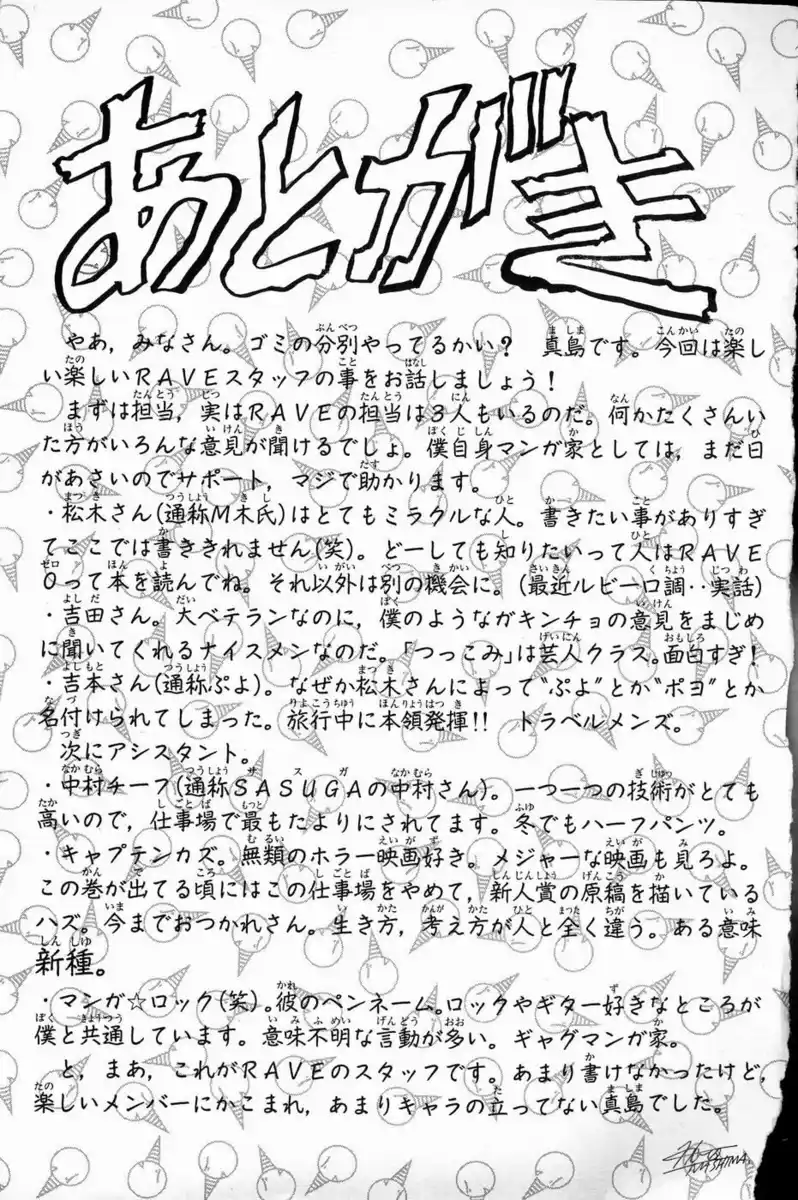 あとがき
やあ，みなさん。ゴミの分別やってるかい？　真島です。今回は楽し
い楽しいRAVEスタッフの事をお話しましょう！
まずは担当，実はRAVEの担当は3人もいるのだ。何かたくさんい
た方がいろんな意見が聞けるでしょ。僕自身マンガ家としては，まだ日
があさいのでサポート，マジで助かります。
・松木さん(通称M木氏)はとてもミラクルな人。書きたい事がありすぎ
てここでは書ききれません(笑)。どーしても知りたいって人はRAVE
0って本を読んでね。それ以外は別の機会に。(最近ルビー口調‥実話)
・吉田さん。大ベテランなのに，僕のようなガキンチョの意見をまじめ
に聞いてくれるナイスメンなのだ。「つっこみ」は芸人クラス。面白すぎ！
・吉本さん(通称ぷよ)。なぜか松木さんによって“ぷよ”とか“ポヨ”とか
名付けられてしまった。旅行中に本領発揮!!　トラベルメンズ。
次にアシスタント。
・中村チーフ(通称SASUGAの中村さん)。一つ一つの技術がとても
高いので，仕事場で最もたよりにされてます。冬でもハーフパンツ。
・キャプテンカズ。無類のホラー映画好き。メジャーな映画も見ろよ。
この巻が出てる頃にはこの仕事場をやめて，新人賞の原稿を描いている
ハズ。今までおつかれさん。生き方，考え方が人と全く違う。ある意味
新種。
・マンガ☆ロック(笑)。彼のペンネーム。ロックやギター好きなところが
僕と共通しています。意味不明な言動が多い。ギャグマンガ家。
と，まあ，これがRAVEのスタッフです。あまり書けなかったけど，
楽しいメンバーにかこまれ，あまりキャラの立ってない真島でした。
MASHIMA